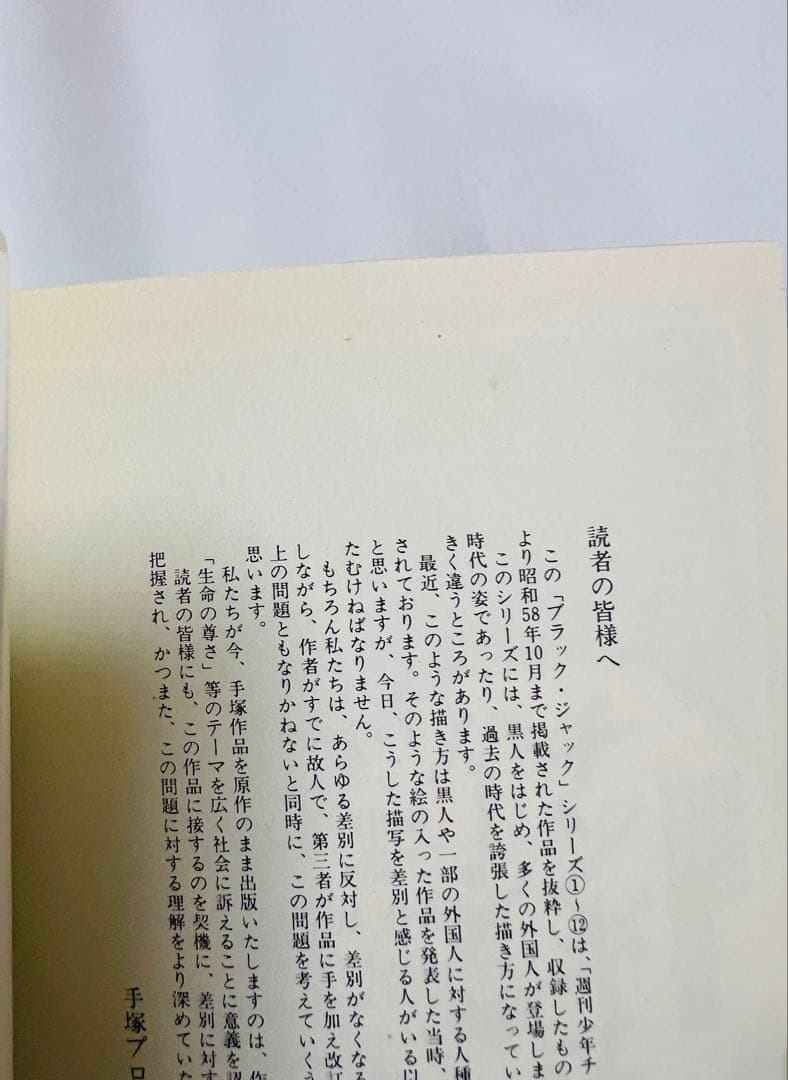 読者の皆様へ
この「ブラック・ジャック」シリーズ①～⑫は、「週刊少年チ
より昭和58年10月まで掲載された作品を抜粋し、収録したもの
このシリーズには、黒人をはじめ、多くの外国人が登場しま
時代の姿であったり、過去の時代を誇張した描き方になってい
きく違うところがあります。
最近、このような描き方は黒人や一部の外国人に対する人種
されております。そのような絵の入った作品を発表した当時、
と思いますが、今日、こうした描写を差別と感じる人がいる以
たむけねばなりません。
もちろん私たちは、あらゆる差別に反対し、差別がなくなる
しながら、作者がすでに故人で、第三者が作品に手を加え改訂
上の問題ともなりかねないと同時に、この問題を考えていくう
思います。
私たちが今、手塚作品を原作のまま出版いたしますのは、作
「生命の尊さ」等のテーマを広く社会に訴えることに意義を認
読者の皆様にも、この作品に接するのを契機に、差別に対す
把握され、かつまた、この問題に対する理解をより深めていた
手塚プロ